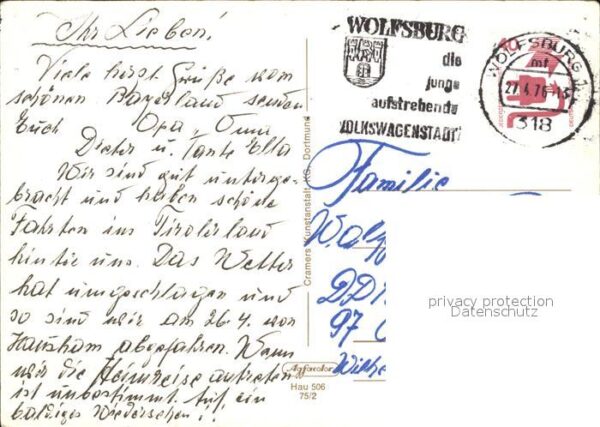 Ihr Lieben!
Viele herzl. Grüße vom
schönen Bayerland senden
Euch Opa, Oma
Dieter u. Tante Ella
Wir sind gut unterge-
bracht und haben schöne
Fahrten ins Tirolerland
hinter uns. Das Wetter
hat umgeschlagen und
so sind wir am 26.4. von
Hausham abgefahren. Wann
wir die Heimreise antreten
ist unbestimmt. Auf ein
baldiges Wiedersehen!!
Cramers Kunstanstalt KG, Dortmund
Agfacolor
Hau 506
75/2
WOLFSBURG
die
junge
aufstrebende
VOLKSWAGENSTADT
WOLFSBURG 1
mf
27.4.76-13
318
10
Familie
DD
97
privacy protection
Datenschutz